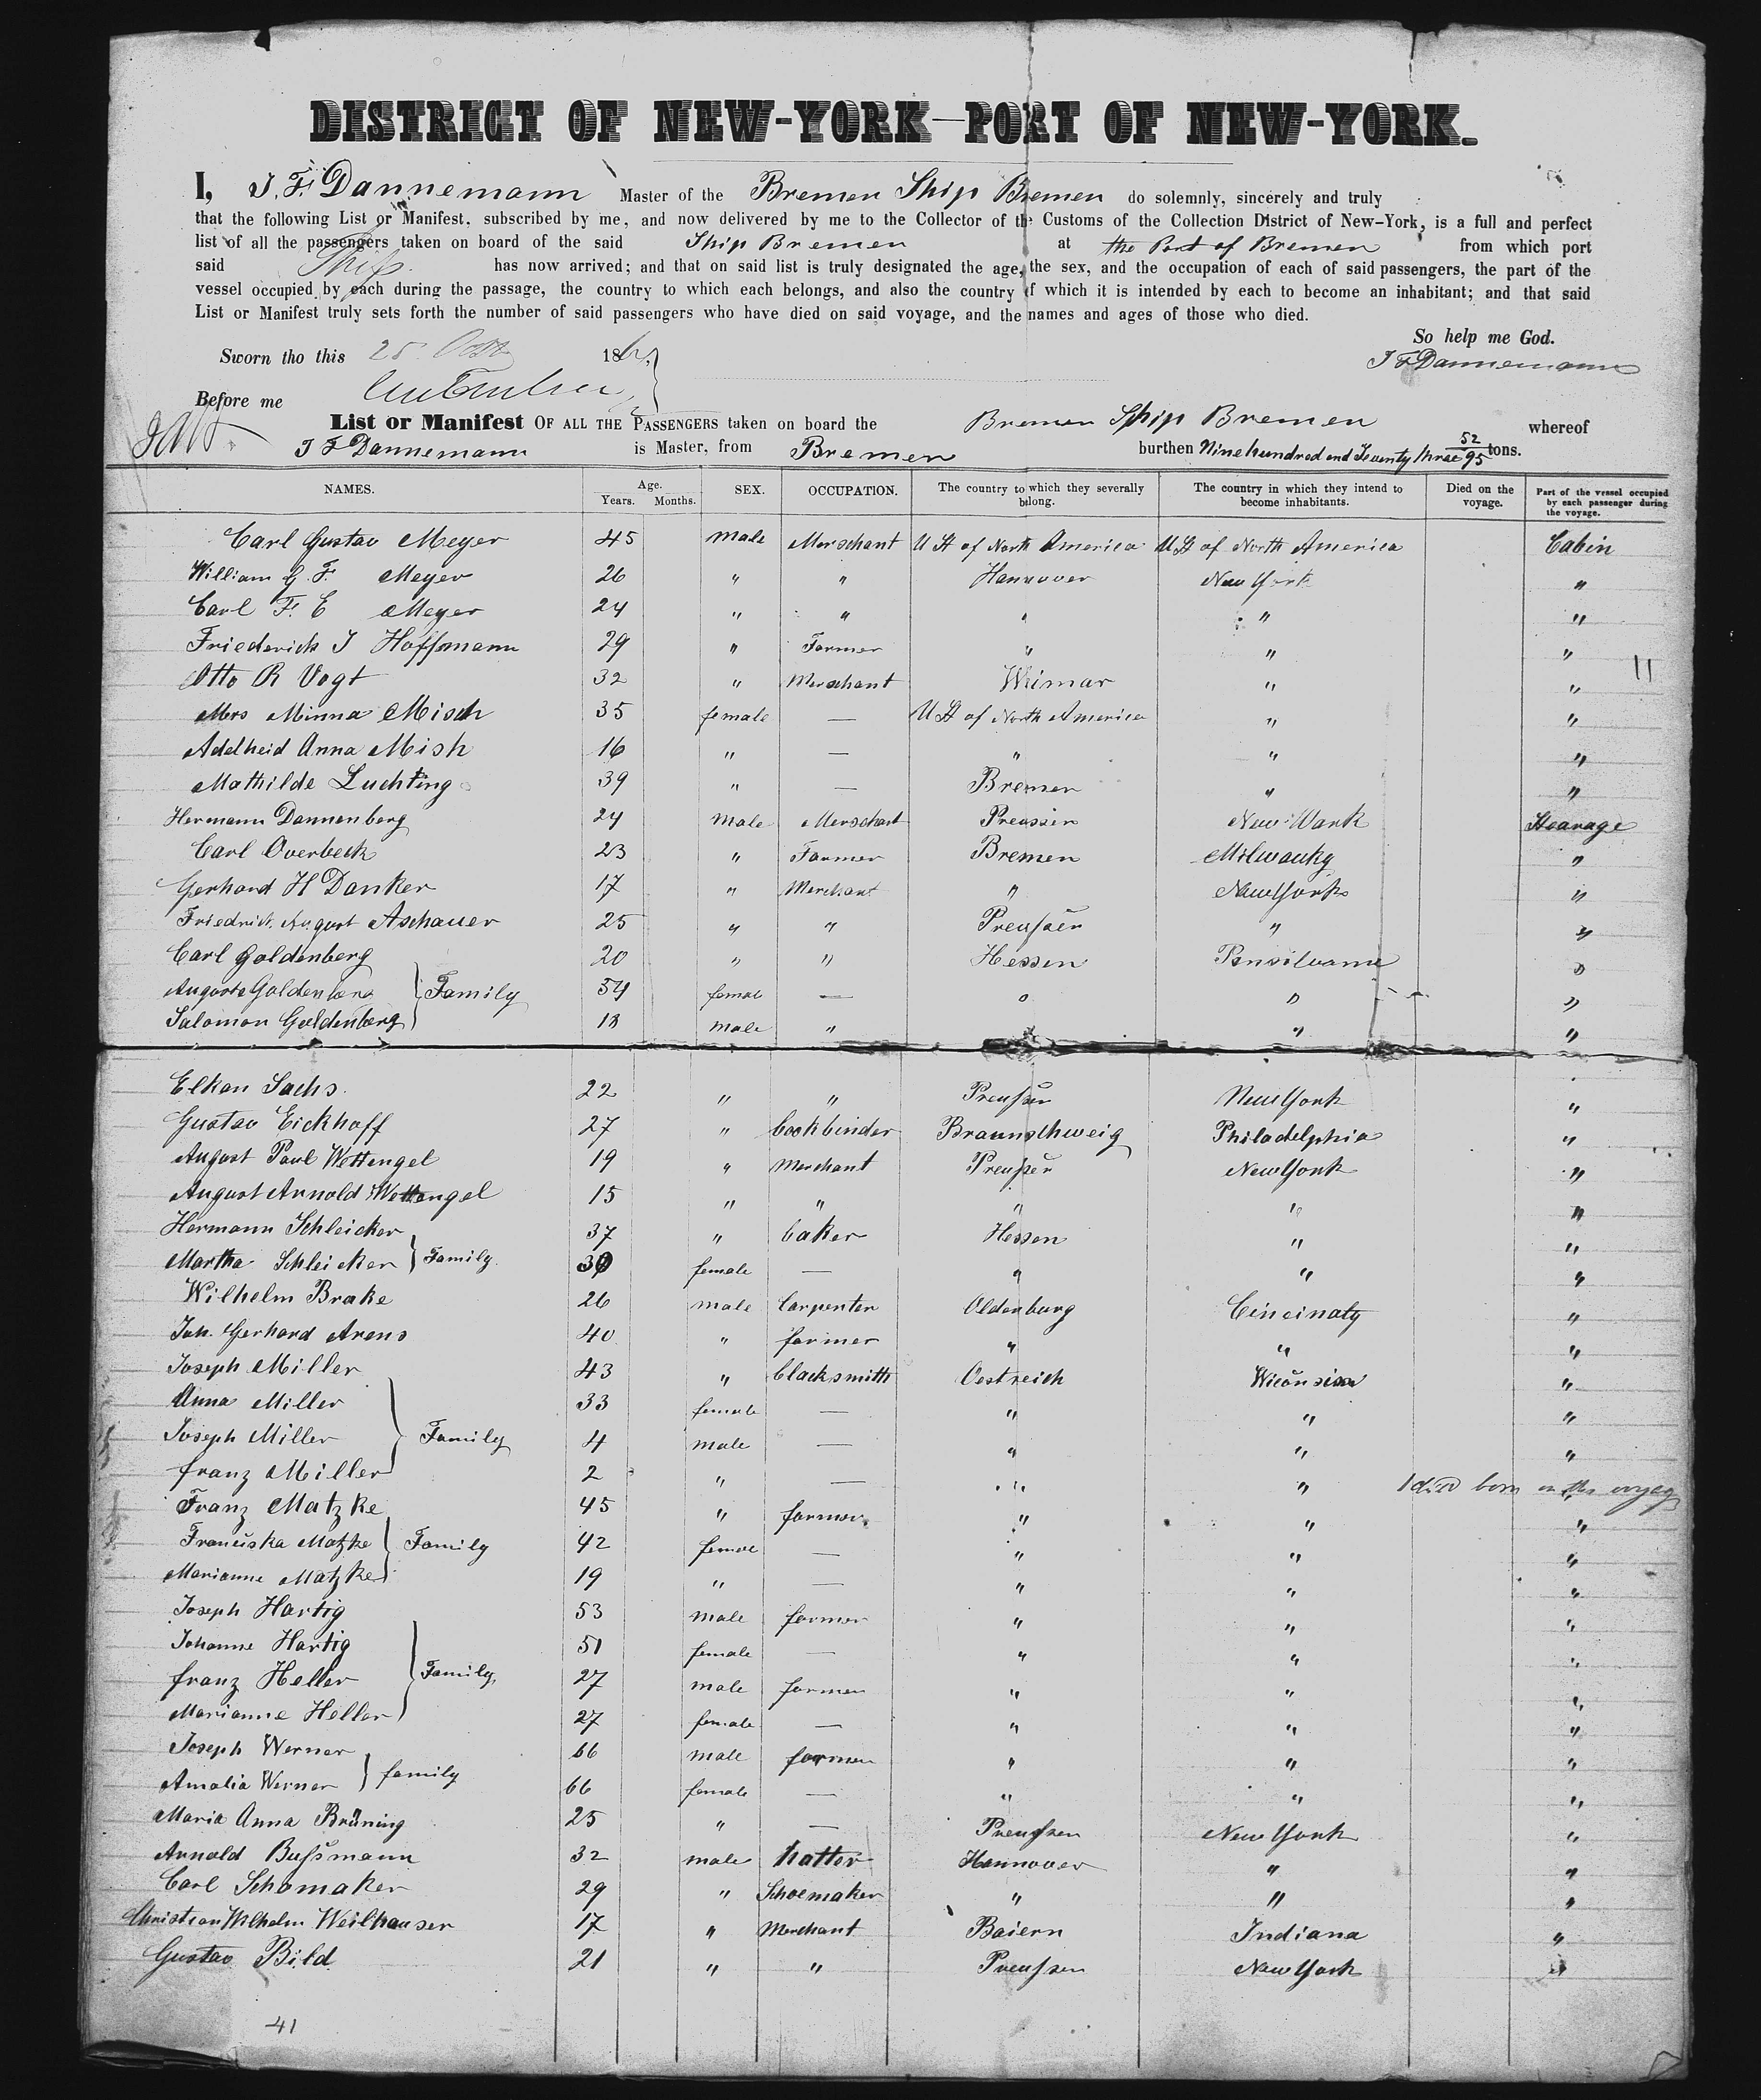 DISTRICT OF NEW-YORK—PORT OF NEW-YORK.
I, J. F. Dannemann Master of the Bremen Ship Bremen do solemnly, sincerely and truly
that the following List or Manifest, subscribed by me, and now delivered by me to the Collector of the Customs of the Collection District of New-York, is a full and perfect
list of all the passengers taken on board of the said Ship Bremen at the Port of Bremen from which port
said Ship has now arrived; and that on said list is truly designated the age, the sex, and the occupation of each of said passengers, the part of the
vessel occupied by each during the passage, the country to which each belongs, and also the country of which it is intended by each to become an inhabitant; and that said
List or Manifest truly sets forth the number of said passengers who have died on said voyage, and the names and ages of those who died.
So help me God.
J F Dannemann
Sworn tho this 25 186
Before me
List or Manifest OF ALL THE PASSENGERS taken on board the Bremen Ship Bremen whereof
J F Dannemann is Master, from Bremen burthen Nine hundred and Seventy three 52/95 tons.
NAMES. Age. Years. Months. SEX. OCCUPATION. The country to which they severally belong. The country in which they intend to become inhabitants. Died on the voyage. Part of the vessel occupied by each passenger during the voyage.
Carl Gustav Meyer 45 male Merschant U St of North America U St of North America Cabin
William G. F. Meyer 26 " " Hannover New York "
Carl F. E Meyer 24 " " " " "
Friederich J Hoffmann 29 " Farmer " " " 11
Otto R Vogt 32 " Merschant Weimar " "
Mrs Minna Misch 35 female — U St of North America " "
Adelheid Anna Mish 16 " — " " "
Mathilde Luchting 39 " — Bremen " "
Hermann Dannenberg 24 male Merschant Preussen New York Stearage
Carl Overbeck 23 " Farmer Bremen Milwauky "
Gerhard H Danker 17 " Merchant " New York "
Friedrich August Aschauer 25 " " Preußen " "
Carl Goldenberg 20 " " Hessen Pensilvania "
Auguste Goldenberg } Family 54 female — " " "
Salomon Goldenberg 13 male " " "
Elkan Sachs 22 " " Preußen New York "
Gustav Eickhoff 27 " bookbinder Braunschweig Philadelphia "
August Paul Wettengel 19 " Merchant Preußen New York "
August Arnold Wettengel 15 " " " " "
Hermann Schleicker 37 " baker Hessen " "
Martha Schleicker } Family 30 female — " " "
Wilhelm Brake 26 male Carpenter Oldenburg Cincinaty "
Joh. Gerhard Arens 40 " farmer " " "
Joseph Miller 43 " blacksmith Oestreich Wisconsin "
Anna Miller 33 female — " " "
Joseph Miller } Family 4 male — " " "
Franz Miller 2 " — " " 1 child born on the voyage "
Franz Matzke 45 " farmer " " "
Franciska Matzke } Family 42 female — " " "
Marianne Matzke 19 " — " " "
Joseph Hartig 53 male farmer " " "
Johanne Hartig 51 female — " " "
Franz Heller } Family 27 male farmer " " "
Marianne Heller 27 female — " " "
Joseph Werner 66 male farmer " " "
Amalia Werner } family 66 female — " " "
Maria Anna Brüning 25 " — Preußen New York "
Arnold Bußmann 32 male hatter Hannover " "
Carl Schomaker 29 " Schoemaker " " "
Christian Wilhelm Weilhauser 17 " Merchant Baiern Indiana "
Gustav Bild 21 " " Preußen New York "
41